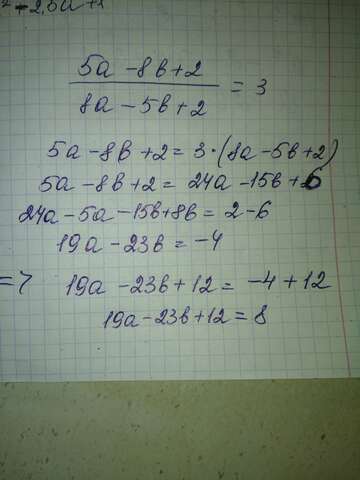 5a - 8b + 2
8a - 5b + 2
= 3
5a - 8b + 2 = 3 · (8a - 5b + 2)
5a - 8b + 2 = 24a - 15b + 6
24a - 5a - 15b + 8b = 2 - 6
19a - 23b = -4
=> 19a - 23b + 12 = -4 + 12
19a - 23b + 12 = 8